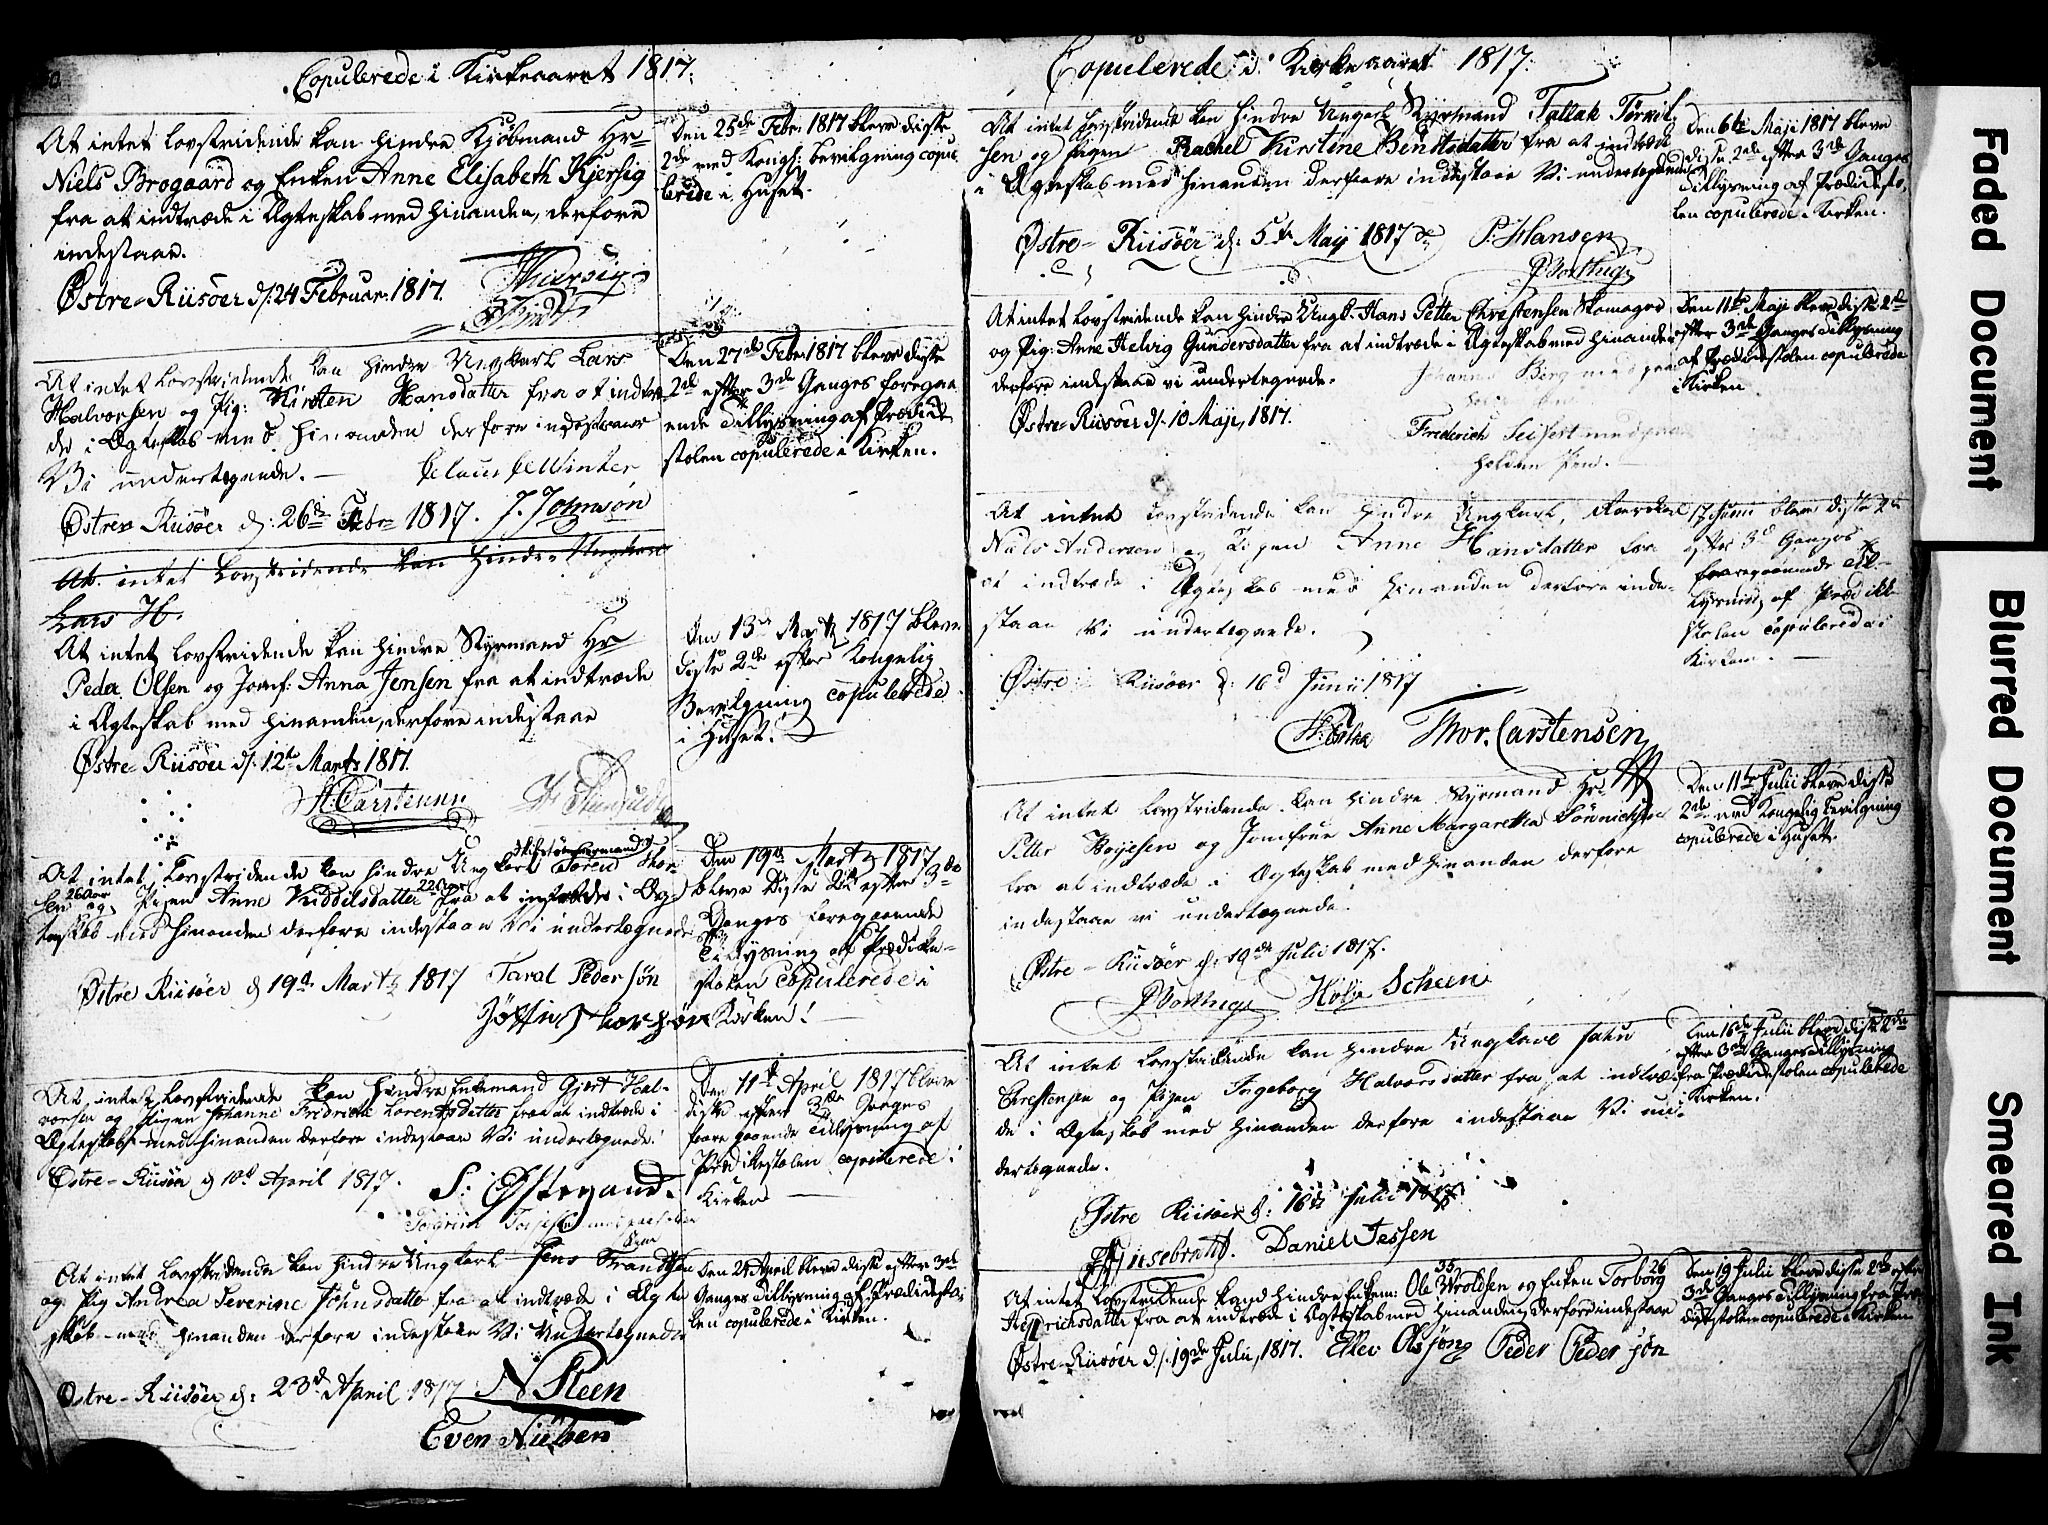 Copulerede i Kirkeaaret 1817.
At intet Lovstridende kan hindre Kjøbmand Hr
Niels Brogaard og Enken Anne Elisabeth Kjersig
fra at indtræde i Ægteskab med hinanden, derfore
indestaar.
Østre-Riisöer d: 24 Februar 1817.
Den 25de Febr 1817 bleve disse
2de med Kongl: Bevilgning copu-
lerede i Huset.
At intet Lovstridende kan hindre Ungkarl Lars
Halvorsen og Pig: Kirsten Hansdatter fra at indtræ
de i Ægteskab med hinanden derfore indestaaer
Vi undertegnede.
Claus Winter
Østre Riisöer d: 26de Febr 1817. J. Johnsøn
Den 27de Febr 1817 bleve disse
2de efter 3de Ganges foregaa
ende Tillysning af Prædike
stolen copulerede i Kirken.
At intet Lovstridende kan hindre Ungkarl
Lars H.
At intet Lovstridende kan hindre Styrmand Hr
Peder Olsen og Jomf: Anna Jensen fra at indtræde
i Ægteskab med hinanden, derfore indestaae
Østre-Riisöer d: 12te Marts 1817.
H. Carstensen
Den 13de Martz 1817 bleve
disse 2de efter Kongelig
Bevilgning copulerede
i Huset.
At intet Lovstridende kan hindre Ungkarl Søren Thor
sen 26 Aar og Pigen Anne Kiddilsdatter 22 Aar fra at indtræde i Æg
teskab med hinanden derfore indestaae Vi undertegnede
Østre Riisöer d 19d Martz 1817 Taral Pedersøn
Den 19de Martz 1817
bleve disse 2de efter 3de
Ganges foregaaende
Tillysning af Prædike-
stolen copulerede i
Kirken!
At intet Lovstridende kan hindre Enkemand Gjert Hal-
vorsen og Pigen Johanne Fridricke Lorentsdatter fra at indtræde i
Ægteskab med hinanden derfore indestaae Vi undertegnede.
Østre-Riisöer d 10d April 1817.
S: Østerand.
Den 11te April 1817 bleve
disse efter 3de Ganges
foregaaende Tillysning af
Prædikestolen copulerede i
Kirken
At intet Lovstridende kan hindre Ungkarl Jens Frandsen
og Pig Andrea Severine Johnsdatter fra at indtræde i Ægte
skab med hinanden derfore indestaae Vi Undertegnede
Østre-Riisöer d: 23d April 1817
N Steen
Even Nielsen
Den 24 April bleve disse efter 3de
Ganges Tillysning af Prædikesto
len copulerede i Kirken.
Copulerede i Kirkeaaret 1817.
At intet Lovstridende kan hindre Ungkarl Styrmand Tallak Törkil
sen og Pigen Rachel Kirstine Bentsdatter fra at indtræde
i Ægteskab med hinanden derfore indestaae Vi undertegnede
Østre-Riisöer d: 5te Maij 1817
P. Hansen
Den 6te Maji 1817 bleve
disse 2de efter 3de Ganges
Tillysning af Prædikesto,
len copulerede i Kirken.
At intet Lovstridende kan hindre Ungk. Hans Petter Christensen Skomager
og Pig: Anne Helvig Gundersdatter fra at indtræde i Ægteskab med hinanden
derfore indestaae vi undertegnede.
Johannes Berg med paa
Østre-Riisöer d: 10 Maji, 1817.
Frederich Seifert med paa
holden Pen.
Den 11te Maji bleve disse 2de
efter 3de Ganges Tillysning
af Prædikestolen copulerede
i Kirken
At intet Lovstridende kan hindre Ungkarl,
Niels Andersen og Pigen Anne Hansdatter fra
at indtræde i Ægteskab med hinanden derfore inde-
staae Vi undertegnede.
Østre Riisöer d: 16d Junii 1817
Thor. Carstensen
17 Junii bleve disse 2de
efter 3de Ganges
foregaaende Til-
lysning af Prædike
stolen copulerede i
Kirken.
At intet Lovstridende kan hindre Styrmand Hr
Petter Boyesen og Jomfrue Anne Margaretha Sönnichsen
fra at indtræde i Ægteskab med hinanden derfore
indestaae vi undertegnede.
Østre-Riisöer d: 10de Julii 1817.
Scheen
Den 11te Julii bleve disse
2de med Kongelig Bevilgning
copulerede i Huset.
At intet Lovstridende kan hindre Ungkarl
Christensen og Pigen Ingeborg Halvorsdatter fra at indtræ-
de i Ægteskab med hinanden derfore indestaae Vi un-
dertegnede.
Østre Riisöer d: 16de Julii 1817.
Daniel Jessen
Den 16de Julii bleve disse 2de
efter 3de Ganges Tillysning
fra Prædikestolen copulerede
i Kirken.
At intet Lovstridende kand hindre Enkem: Ole Wroldsen 35 og Enken Torborg 26
Hendrichsdatter fra at indtræde i Ægteskab med hinanden, derfor indestaae
Østre-Riisöer d: 19de Julii, 1817. Ellev Olssøn Peder Pedersøn
Den 19 Julii bleve disse 2de efter
3de Ganges Tillysning fra Præ
dikestolen copulerede i Kirken
Faded Document
Blurred Document
Smeared Ink